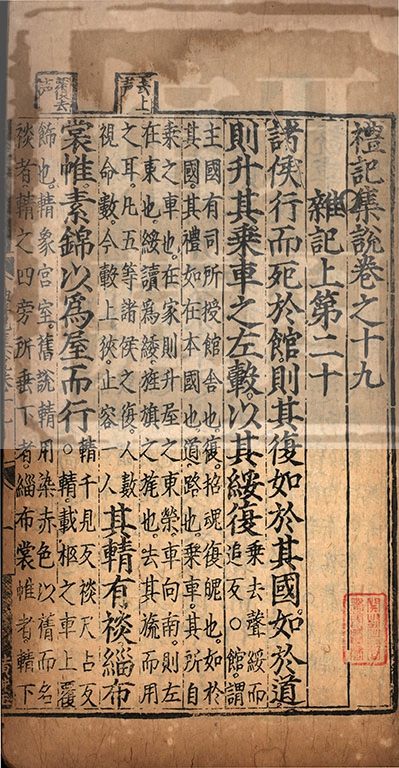 禮記集說卷之十九
雜記上第二十
諸侯行而死於館則其復如於其國如於道
則升其乘車之左轂以其綏復 乘去聲綏而追反○館謂
主國有司所授館舍也復招魂復魄也如於
其國其禮如在本國也道路也乘車其所自
乘之車也在家則升屋之東榮車向南則左
在東也綏讀爲緌旌旗之旄也去其旒而用
之耳凡五等諸侯之復人數
視命數今轂上狹止容一人 其輤有裧緇布
裳帷素錦以爲屋而行 輤千見反裧尺占反○輤載柩之車上覆
飾也輤象宮室舊說輤用染赤色以蒨而名
裧者輤之四旁所垂下者緇布裳帷者輤下